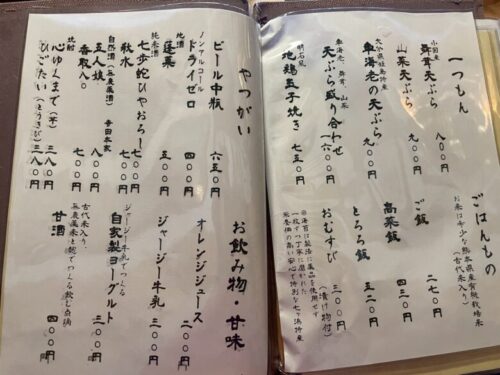 一つもん
小国産
舞茸天ぷら 八〇〇円
山菜天ぷら 九〇〇円
大分県姫島産
車海老の天ぷら 九〇〇円
車海老、舞茸、山菜
天ぷら盛り合わせ 一六〇〇円
明石風
地鶏玉子焼き 七五〇円
ごはんもの
お米は希少な熊本県産有機栽培米
(古代米入り)
ご飯 二七〇円
高菜飯 四二〇円
とろろ飯 五二〇円
おむすび 三〇〇円
(漬け物付)
やつがい
ビール中瓶 六五〇円
ノンアルコール
ドライゼロ 四〇〇円
地酒
蓬莱 五〇〇円
純米酒
七歩蛇ひやおろし 七〇〇円
秋水 七〇〇円
自然酒(無農薬酒) 寺田本家
五人娘 八〇〇円
香取八〇 七〇〇円
焼酎
心ゆくまで(芋) 三八〇円
ひごたい(とうきび) 三八〇円
お飲み物・甘味
オレンジジュース 二〇〇円
ジャージー牛乳 三〇〇円
ジャージー牛乳でつくる
自家製ヨーグルト 三〇〇円
古代米入り、
無農薬米と糀でつくる飲む点滴
甘酒 四〇〇円